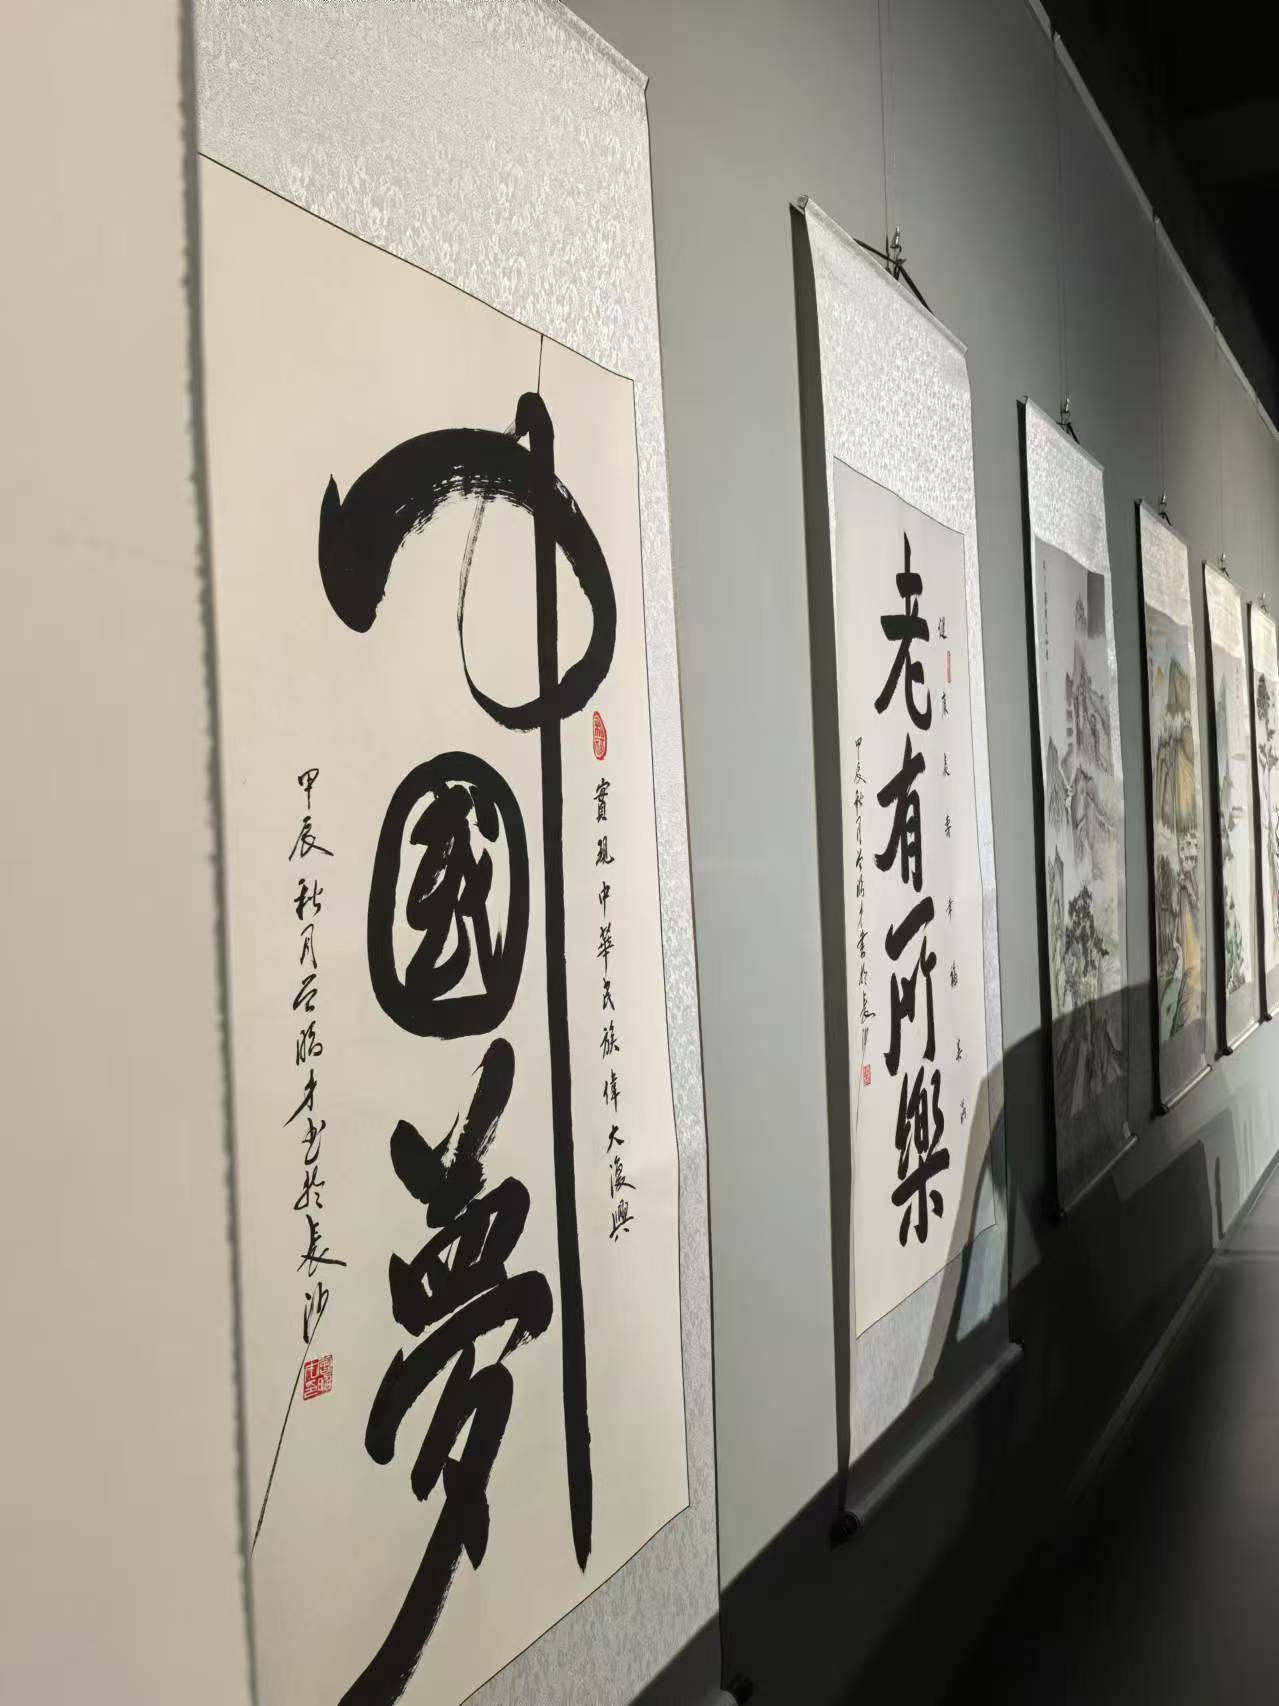 中國夢
實現中華民族偉大復興
甲辰秋月
書於長沙
老有所樂
健康長壽幸福美滿
甲辰秋月
書於長沙